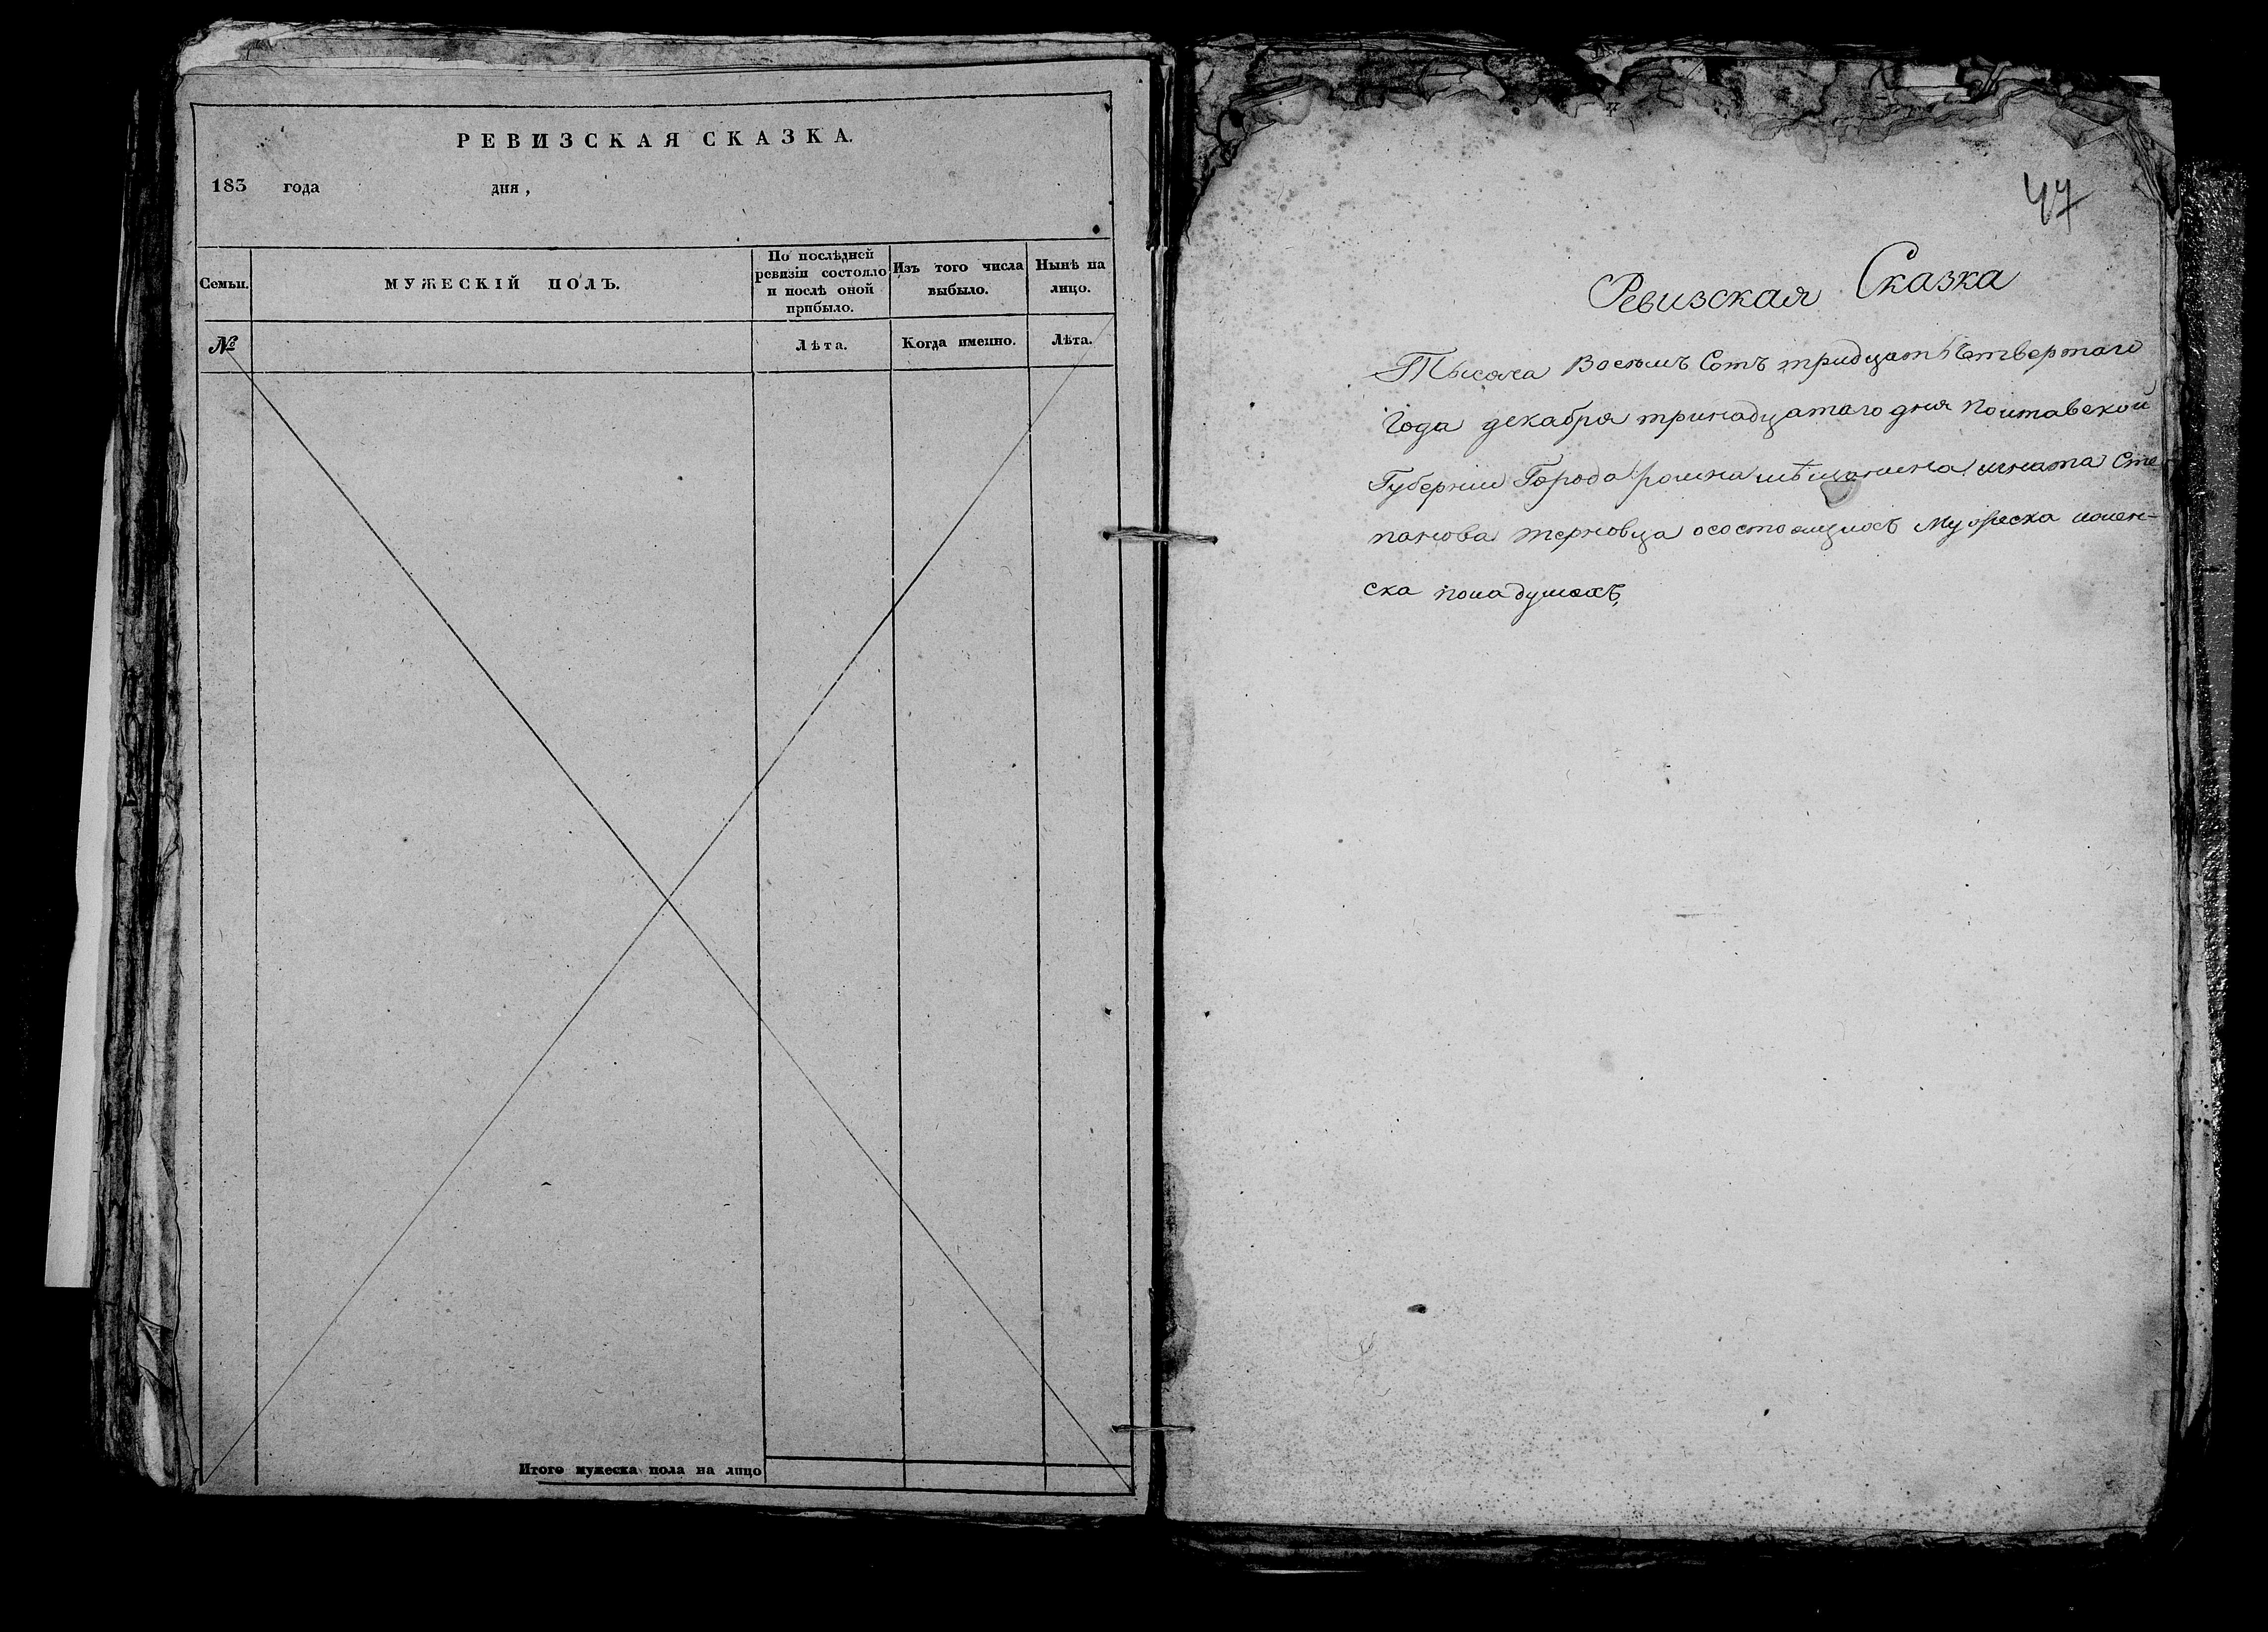 РЕВИЗСКАЯ СКАЗКА.
183 года дня,
Семьи.
МУЖЕСКІЙ ПОЛЪ.
По послѣдней ревизіи состояло и послѣ оной прибыло.
Изъ того числа выбыло.
Нынѣ на лицо.
№
Лѣта.
Когда именно.
Лѣта.
Итого мужеска пола на лицо
47
Ревизская Сказка
Тысяча Восемъ Сотъ тридцать Четвертаго
Года декабря тринадцатаго дня Полтавской
Губернии Города ромна мѣщанина игната Сте
панова терновца осостоящихъ Мужеска ижен-
ска пола душахъ,